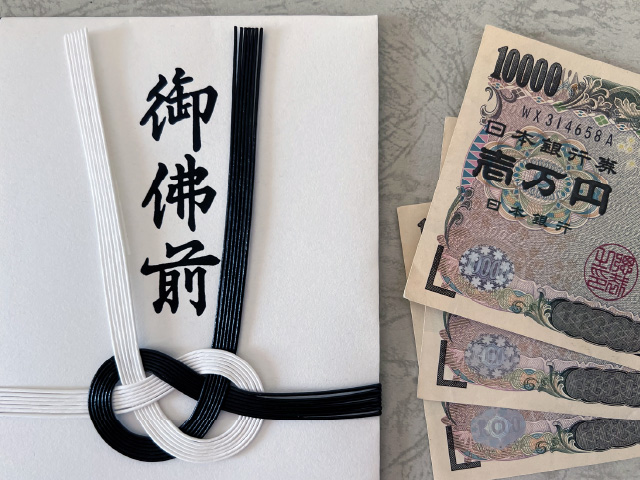 御佛前
10000
WX314658A
日本銀行券
壱万円
日本銀行